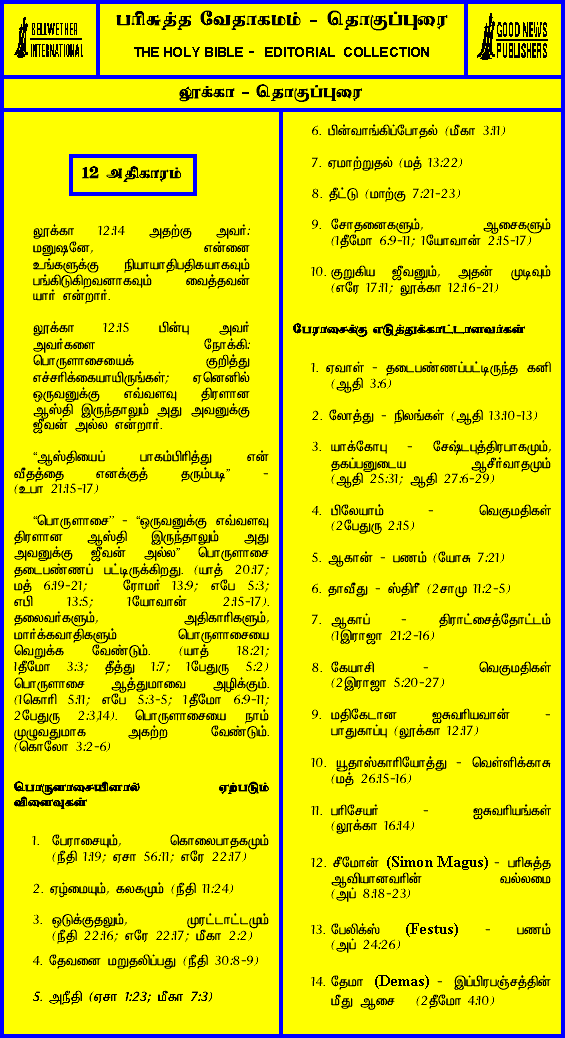 BELLWETHER
INTERNATIONAL
பரிசுத்த வேதாகமம் - தொகுப்புரை
THE HOLY BIBLE - EDITORIAL COLLECTION
GOOD NEWS
PUBLISHERS
லூக்கா - தொகுப்புரை
12 அதிகாரம்
லூக்கா 12:14 அதற்கு அவர்:
மனுஷனே, என்னை
உங்களுக்கு நியாயாதிபதிகயாகவும்
பங்கிடுகிறவனாகவும் வைத்தவன்
யார் என்றார்.
லூக்கா 12:15 பின்பு அவர்
அவர்களை நோக்கி:
பொருளாசையைக் குறித்து
எச்சரிக்கையாயிருங்கள்; ஏனெனில்
ஒருவனுக்கு எவ்வளவு திரளான
ஆஸ்தி இருந்தாலும் அது அவனுக்கு
ஜீவன் அல்ல என்றார்.
“ஆஸ்தியைப் பாகம்பிரித்து என்
வீதத்தை எனக்குத் தரும்படி” -
(உபா 21:15-17)
“பொருளாசை” - “ஒருவனுக்கு எவ்வளவு
திரளான ஆஸ்தி இருந்தாலும் அது
அவனுக்கு ஜீவன் அல்ல” பொருளாசை
தடைபண்ணப் பட்டிருக்கிறது. (யாத் 20:17;
மத் 6:19-21; ரோமர் 13:9; எபே 5:3;
எபி 13:5; 1யோவான் 2:15-17).
தலைவர்களும், அதிகாரிகளும்,
மார்க்கவாதிகளும் பொருளாசையை
வெறுக்க வேண்டும். (யாத் 18:21;
1தீமோ 3:3; தீத்து 1:7; 1பேதுரு 5:2)
பொருளாசை ஆத்துமாவை அழிக்கும்.
(1கொரி 5:11; எபே 5:3-5; 1தீமோ 6:9-11;
2பேதுரு 2:3,14). பொருளாசையை நாம்
முழுவதுமாக அகற்ற வேண்டும்.
(கொலோ 3:2-6)
பொருளாசையினால் ஏற்படும்
விளைவுகள்
1. பேராசையும், கொலைபாதகமும்
(நீதி 1:19; ஏசா 56:11; எரே 22:17)
2. ஏழ்மையும், கலகமும் (நீதி 11:24)
3. ஒடுக்குதலும், முரட்டாட்டமும்
(நீதி 22:16; எரே 22:17; மீகா 2:2)
4. தேவனை மறுதலிப்பது (நீதி 30:8-9)
5. அநீதி (ஏசா 1:23; மீகா 7:3)
6. பின்வாங்கிப்போதல் (மீகா 3:11)
7. ஏமாற்றுதல் (மத் 13:22)
8. தீட்டு (மாற்கு 7:21-23)
9. சோதனைகளும், ஆசைகளும்
(1தீமோ 6:9-11; 1யோவான் 2:15-17)
10. குறுகிய ஜீவனும், அதன் முடிவும்
(எரே 17:11; லூக்கா 12:16-21)
பேராசைக்கு எடுத்துக்காட்டானவர்கள்
1. ஏவாள் - தடைபண்ணப்பட்டிருந்த கனி
(ஆதி 3:6)
2. லோத்து - நிலங்கள் (ஆதி 13:10-13)
3. யாக்கோபு - சேஷ்டபுத்திரபாகமும்,
தகப்பனுடைய ஆசீர்வாதமும்
(ஆதி 25:31; ஆதி 27:6-29)
4. பிலேயாம் - வெகுமதிகள்
(2பேதுரு 2:15)
5. ஆகான் - பணம் (யோசு 7:21)
6. தாவீது - ஸ்திரீ (2சாமு 11:2-5)
7. ஆகாப் - திராட்சைத்தோட்டம்
(1இராஜா 21:2-16)
8. கேயாசி - வெகுமதிகள்
(2இராஜா 5:20-27)
9. மதிகேடான ஐசுவரியவான் -
பாதுகாப்பு (லூக்கா 12:17)
10. யூதாஸ்காரியோத்து - வெள்ளிக்காசு
(மத் 26:15-16)
11. பரிசேயர் - ஐசுவரியங்கள்
(லூக்கா 16:14)
12. சீமோன் (Simon Magus) - பரிசுத்த
ஆவியானவரின் வல்லமை
(அப் 8:18-23)
13. பேலிக்ஸ் (Festus) - பணம்
(அப் 24:26)
14. தேமா (Demas) - இப்பிரபஞ்சத்தின்
மீது ஆசை (2தீமோ 4:10)